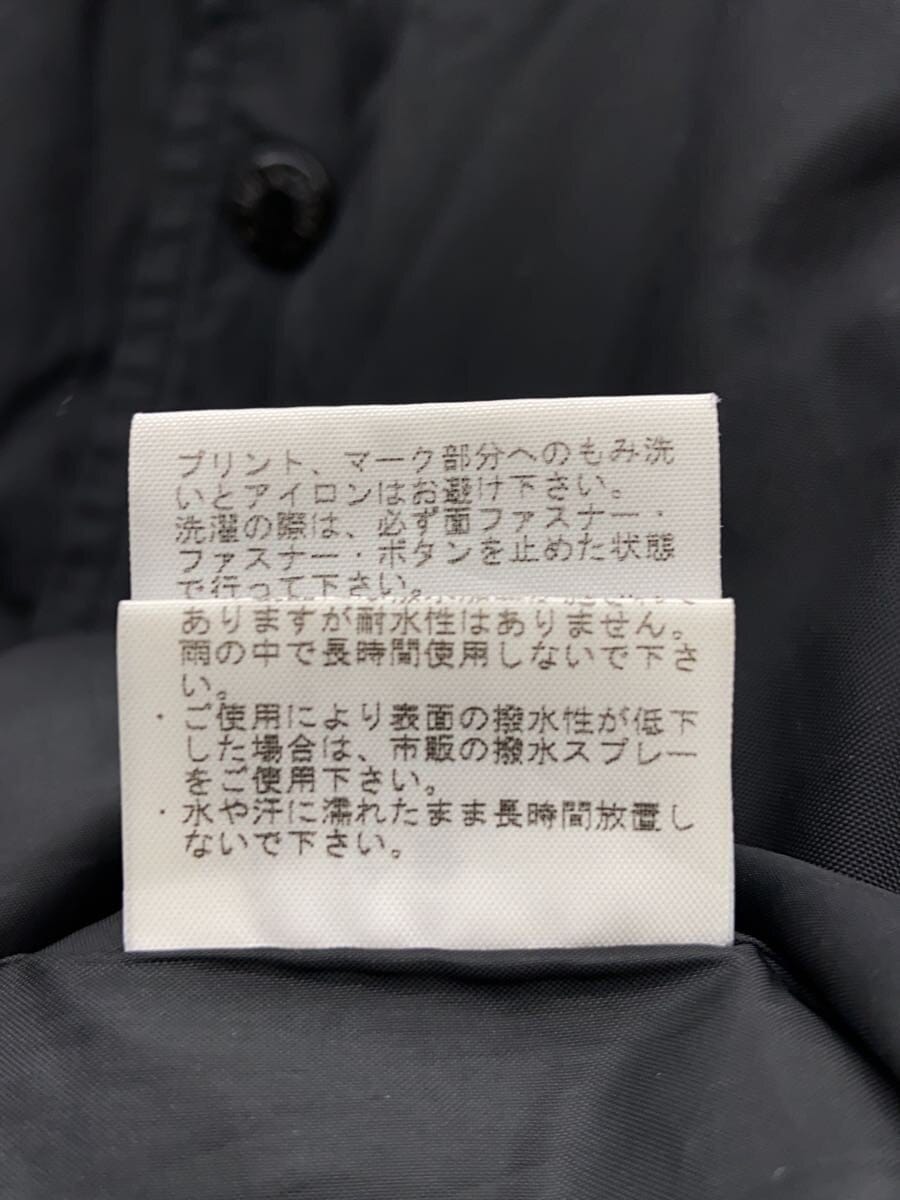 プリント、マーク部分へのもみ洗
いとアイロンはお避け下さい。
洗濯の際は、必ず面ファスナー・
ファスナー・ボタンを止めた状態
で行って下さい。
ありますが耐水性はありません。
雨の中で長時間使用しないで下さ
い。
・ご使用により表面の撥水性が低下
した場合は、市販の撥水スプレー
をご使用下さい。
・水や汗に濡れたまま長時間放置し
ないで下さい。